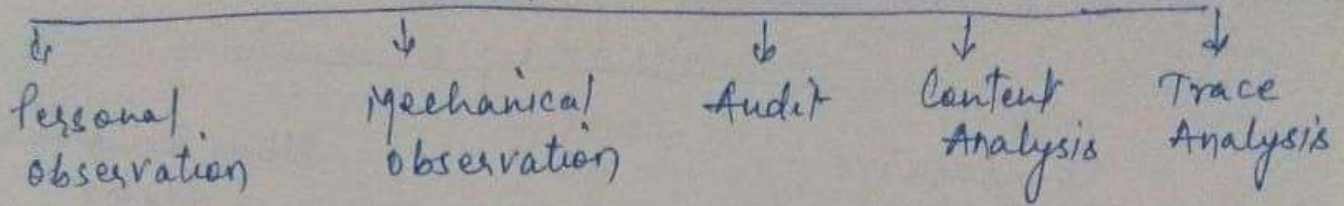 Personal observation
Mechanical observation
Audit
Content Analysis
Trace Analysis